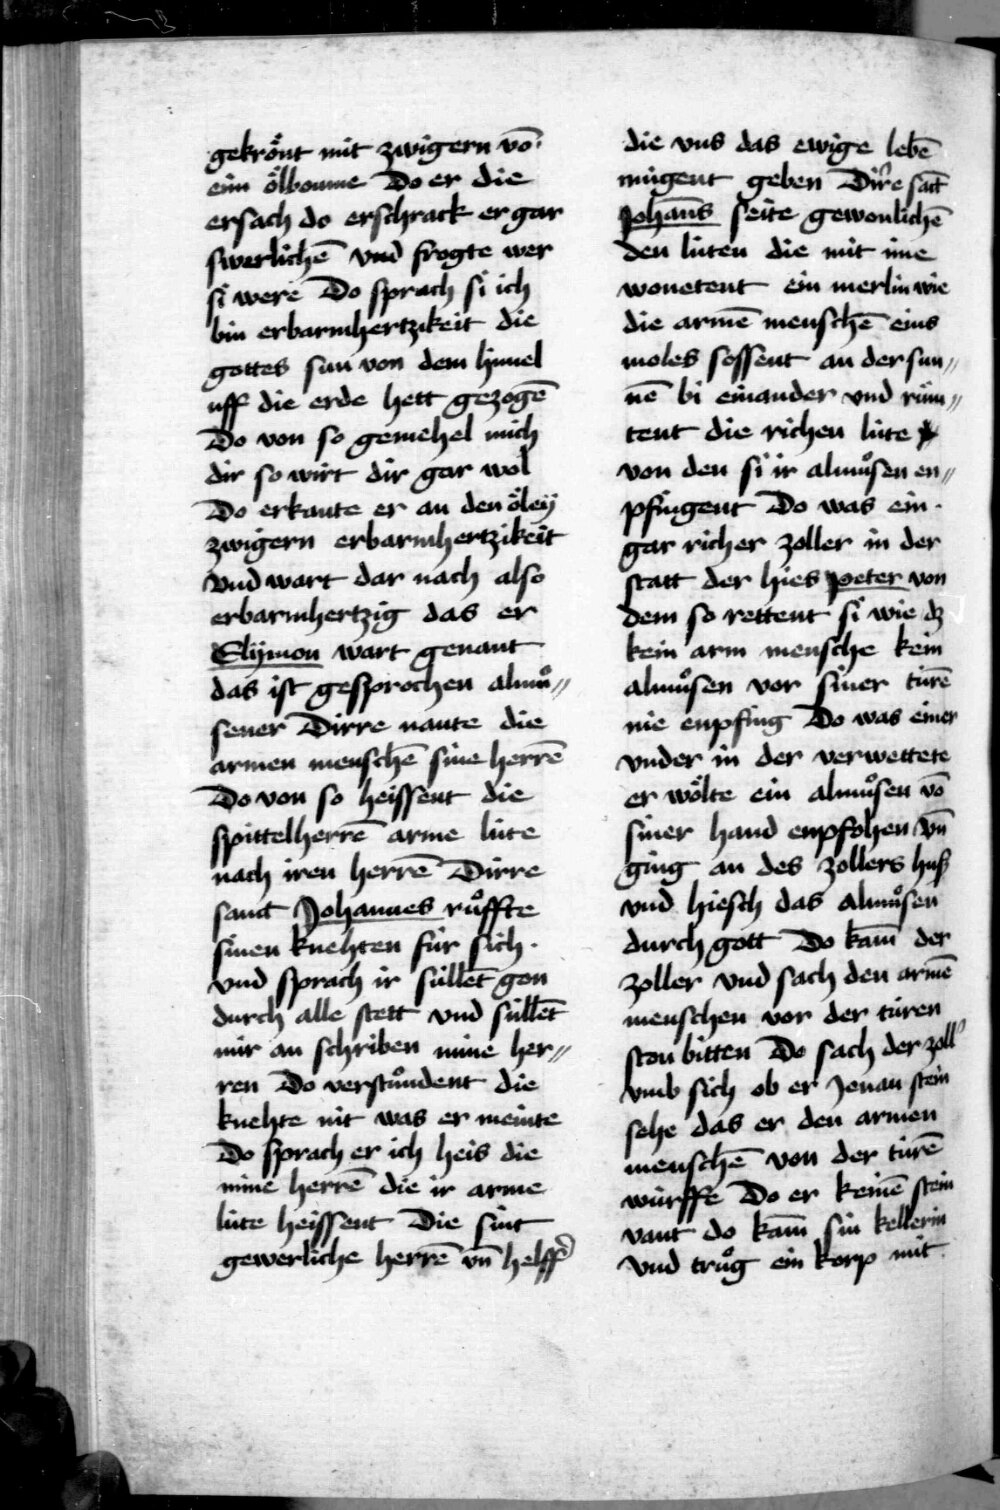 gekroͤnt mit zwigern vō
eim oͤlboume Do er die
ersach do erschrack er gar
swerlichē vnd frogte wer
si were Do sprach si ich
bin erbarmhertzikeit die
gottes sun von dem himel
uff die erde hett gezogē
Do von so gemehel mich
dir so wirt dir gar wol
Do erkante er an den oͤley
zwigern erbarmhertzikeit
vnd wart dar nach also
erbarmhertzig das er
Elymon wart genant
das ist gesprochen almuͦ〃
sener Dirre nante die
armen menschē sine herrē
Do von so heissent die
spittelherrē arme lúte
nach iren herrē Dirre
sanct Johannes ruͦffte
sinen knehten fúr sich
vnd sprach ir súllēt gon
durch alle stett vnd súllēt
mir an schriben mine her〃
ren Do verstuͦndent die
knehte nit was er meinte
Do sprach er ich heis die
mine herrē die ir arme
lúte heissent Die sint
gewerliche herrē vn̄ helff̉
die vns das ewige lebē
múgent geben Dir̉e sāct
Johan̄s seite gewonlichē
den lúten die mit ime
wonetent ein merlin wie
die armē menschē eins
moles sossent an der sun〃
nē bi einander vnd ruͤm〃
tent die richen lúte
von den si ir almuͦsen en〃
pfingent Do was ein
gar richer zoller in der
statt der hies peter von
dem so rettent si wie dz
kein arm mensche kein
almuͦsen vor siner túrē
nie enpfing Do was einer
vnder in der verwettete
er woͤlte ein almuͦsen vō
siner hand enpfohen vn̄
ging an des zollers huß
vnd hiesch das almuͦsen
durch gott Do kam̄ der
zoller vnd sach den armē
menschen vor der túren
ston bitten Do sach der zoll̉
vmb sich ob er jenan stein
sehe das er den armen
menschē von der túrē
wúrffe Do er keinē stein
vant do kam̄ sin kellerin
vnd truͦg ein korp mit